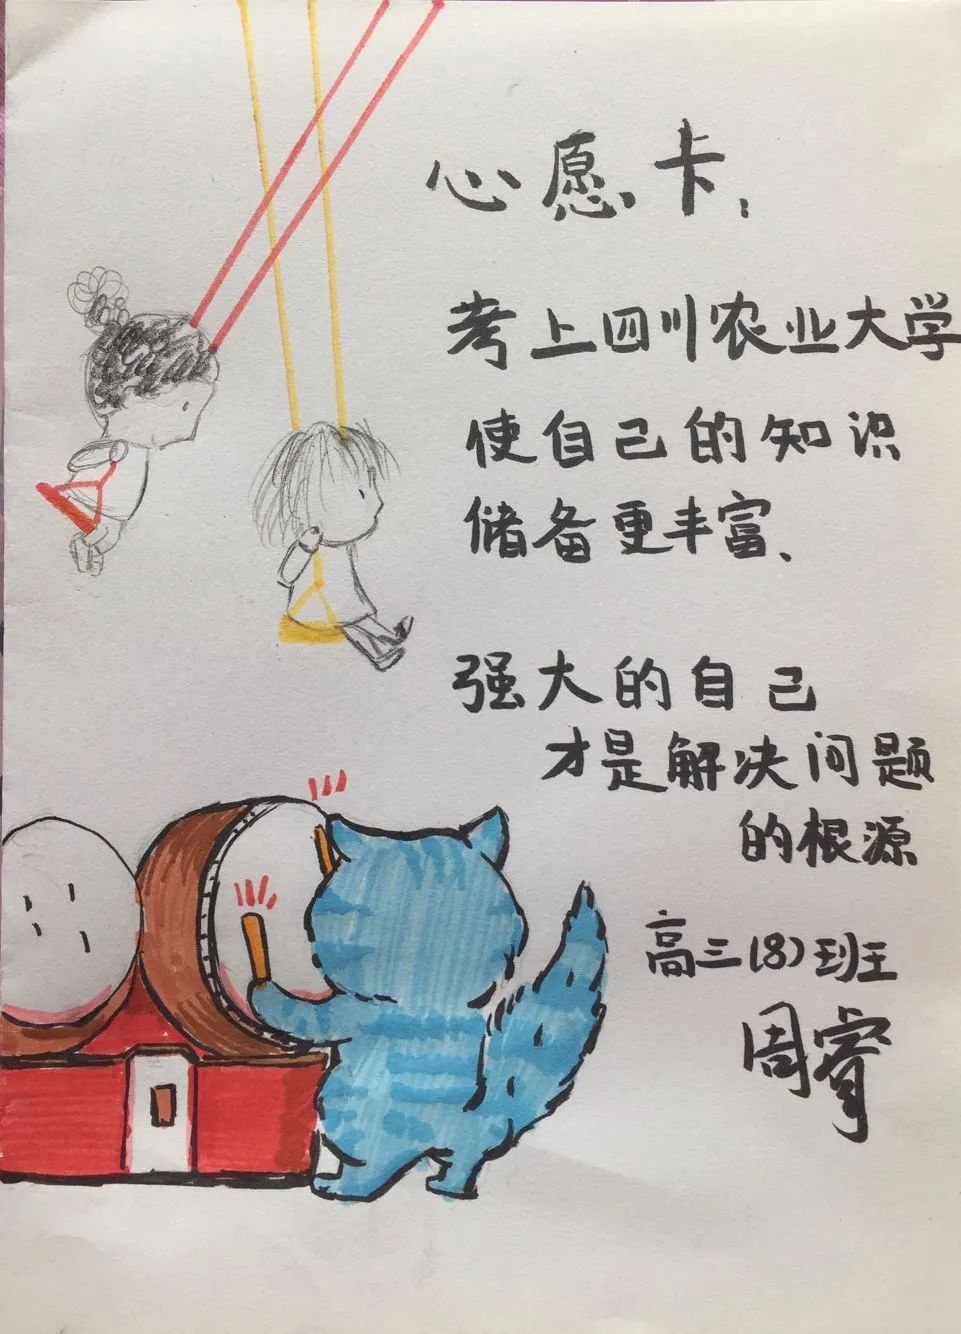 心愿卡.
考上四川农业大学
使自己的知识
储备更丰富、
强大的自己
才是解决问题
的根源
高三(8)班
周睿